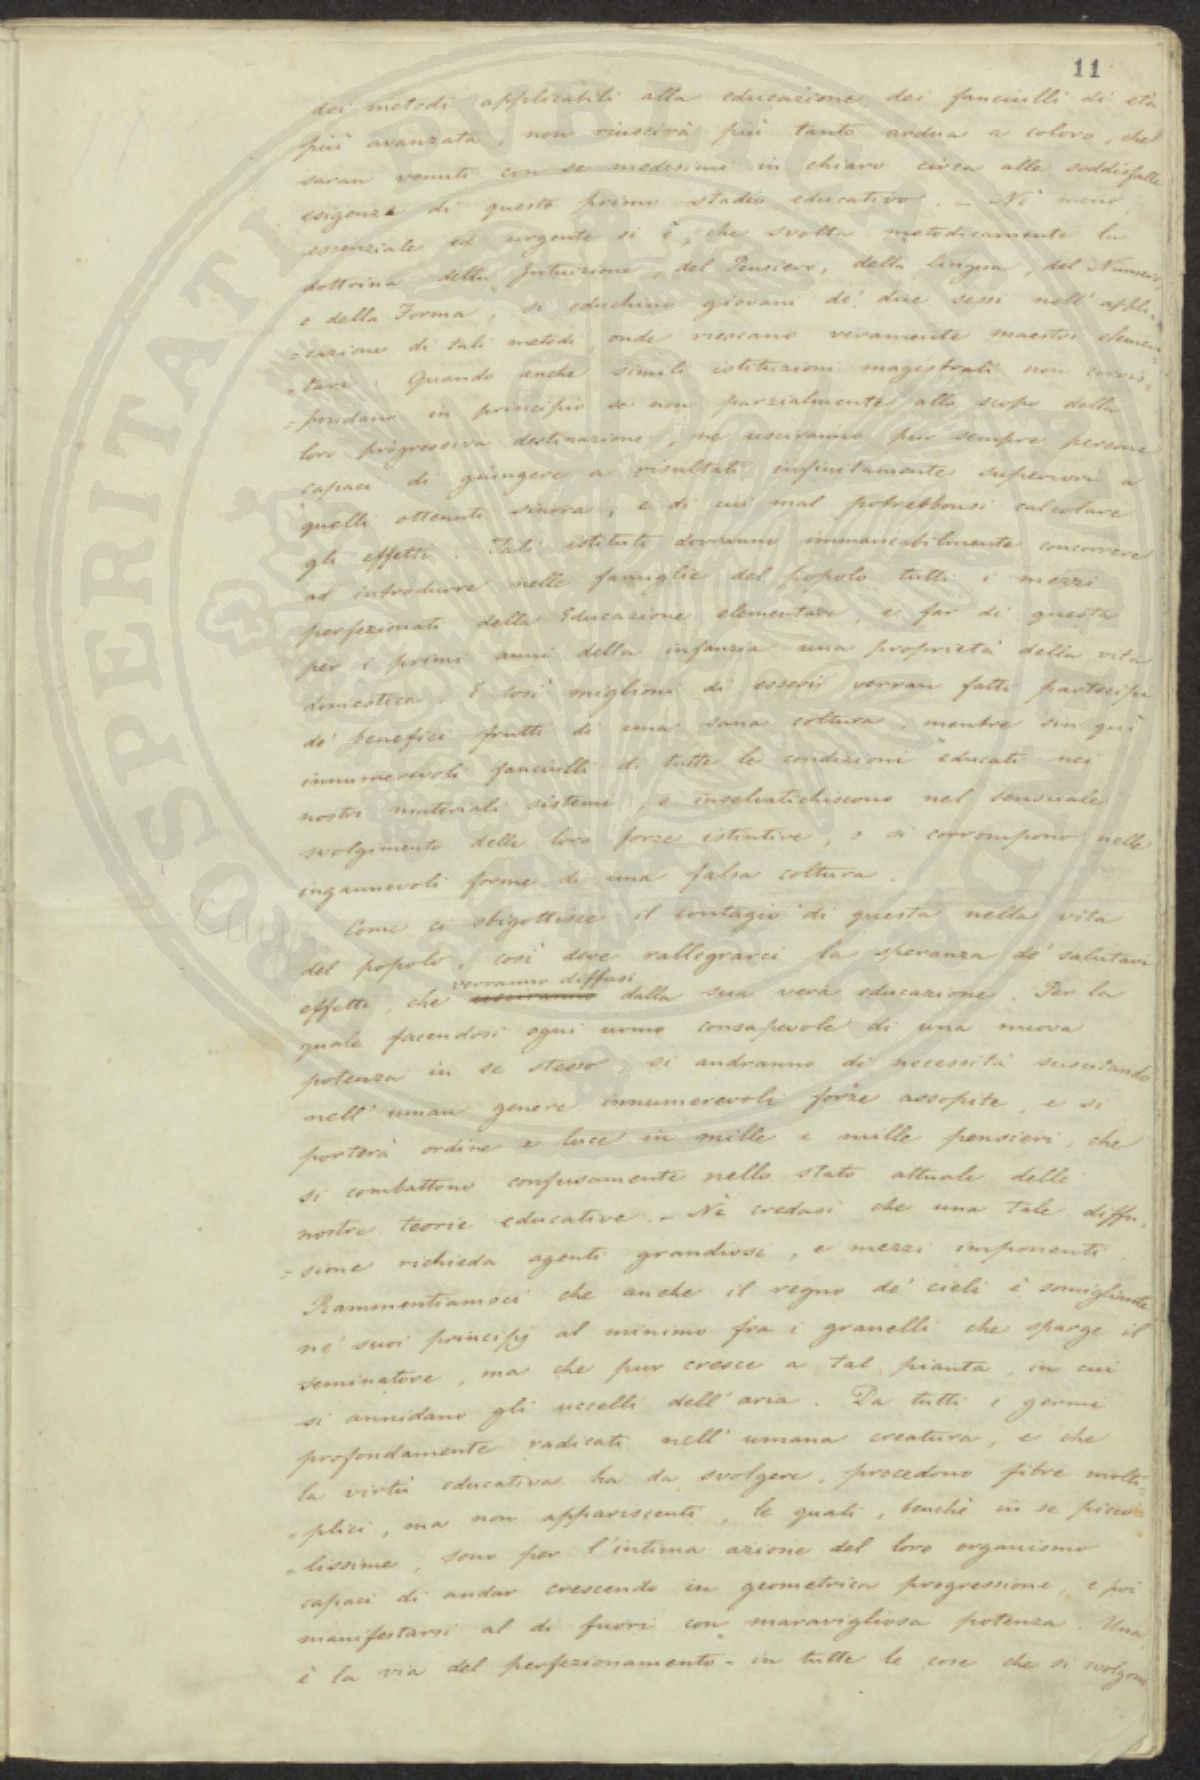 11
dei metodi applicabili alla educazione dei fanciulli di età
più avanzata, non riuscirà più tanto ardua a coloro, che
saran venuti con se medesimi in chiaro circa alle soddisfatte
esigenze di questo primo stadio educativo. - Nè meno
essenziale ed urgente si è, che svolta metodicamente la
dottrina della Intuizione, del Pensiero, della Lingua, del Numero
e della Forma, si educhino giovani de' due sessi nell' appli-
=cazione di tali metodi onde riescano veramente maestri elemen
=tari. Quando anche simili istituzioni magistrali non corris=
=pondano in principio se non parzialmente allo scopo della
loro progressiva destinazione, ne usciranno pur sempre persone
capaci di giungere a risultati infinitamente superiori a
quelli ottenuti sinora, e di cui mal potrebbonsi calcolare
gli effetti. Tali istituti dovranno immancabilmente concorrere
ad introdurre nelle famiglie del popolo tutti i mezzi
perfezionati della Educazione elementare, e far di questa
per i primi anni della infanzia una proprietà della vita
domestica. E così miglioni di esseri verran fatti partecipi
de' benefici frutti di una sana coltura, mentre sin quì
innumerevoli fanciulli di tutte le condizioni educati nei
nostri materiali sistemi, o inselvatichiscono nel sensuale
svolgimento delle loro forze istintive, o si corrompono nelle
ingannevoli forme di una falsa coltura.
Come ci sbigottisce il contagio di questa nella vita
del popolo, così deve rallegrarci la speranza de' salutari
verranno diffusi
effetti, che usciranno dalla sua vera educazione. Per la
quale facendosi ogni uomo consapevole di una nuova
potenza in se stesso, si andranno di necessità suscitando
nell' uman genere innumerevoli forze assopite, e si
porterà ordine e luce in mille e mille pensieri, che
si combattono confusamente nello stato attuale delle
nostre teorie educative. - Nè credasi che una tale diffu-
=sione richieda agenti grandiosi, e mezzi imponenti.
Rammentiamoci che anche il regno de' cieli è somigliante
ne' suoi principj al minimo fra i granelli che sparge il
seminatore, ma che pur cresce a tal pianta, in cui
si annidano gli uccelli dell' aria. Da tutti i germi
profondamente radicati nell' umana creatura, e che
la virtù educativa ha da svolgere, procedono fibre molti=
=plici, ma non appariscenti, le quali, benchè in se picco
=lissime, sono per l'intima azione del loro organismo
capaci di andar crescendo in geometrica progressione, e poi
manifestarsi al di fuori con maravigliosa potenza. Una
è la via del perfezionamento - in tutte le cose che si svolgono
PROSPERITATI PVBLICAE